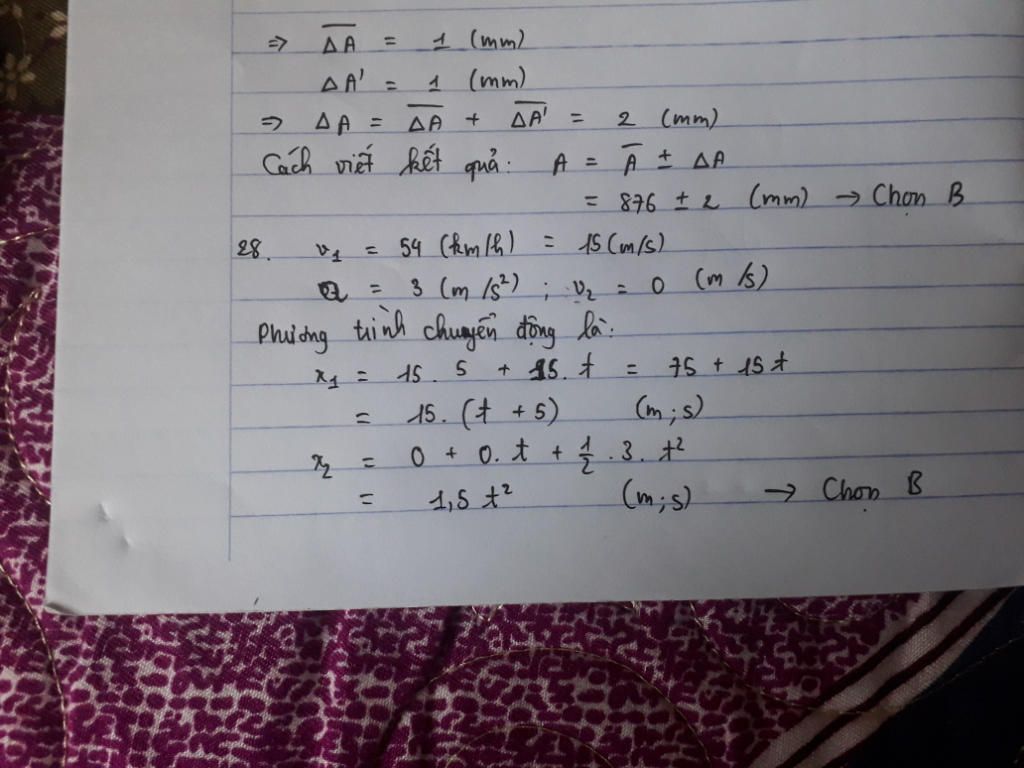 ⇒ \overline{ΔA} = 1 (mm)
ΔA' = 1 (mm)
⇒ ΔA = \overline{ΔA} + \overline{ΔA'} = 2 (mm)
Cách viết kết quả: A = \overline{A} ± ΔA
= 876 ± 2 (mm) → Chọn B
28. v₁ = 54 (km/h) = 15 (m/s)
a = 3 (m/s²) ; v₂ = 0 (m/s)
Phương trình chuyển động là:
x₁ = 15. 5 + 15. t = 75 + 15 t
= 15. (t + 5) (m; s)
x₂ = 0 + 0. t + \frac{1}{2} . 3. t²
= 1,5 t² (m; s) → Chọn B